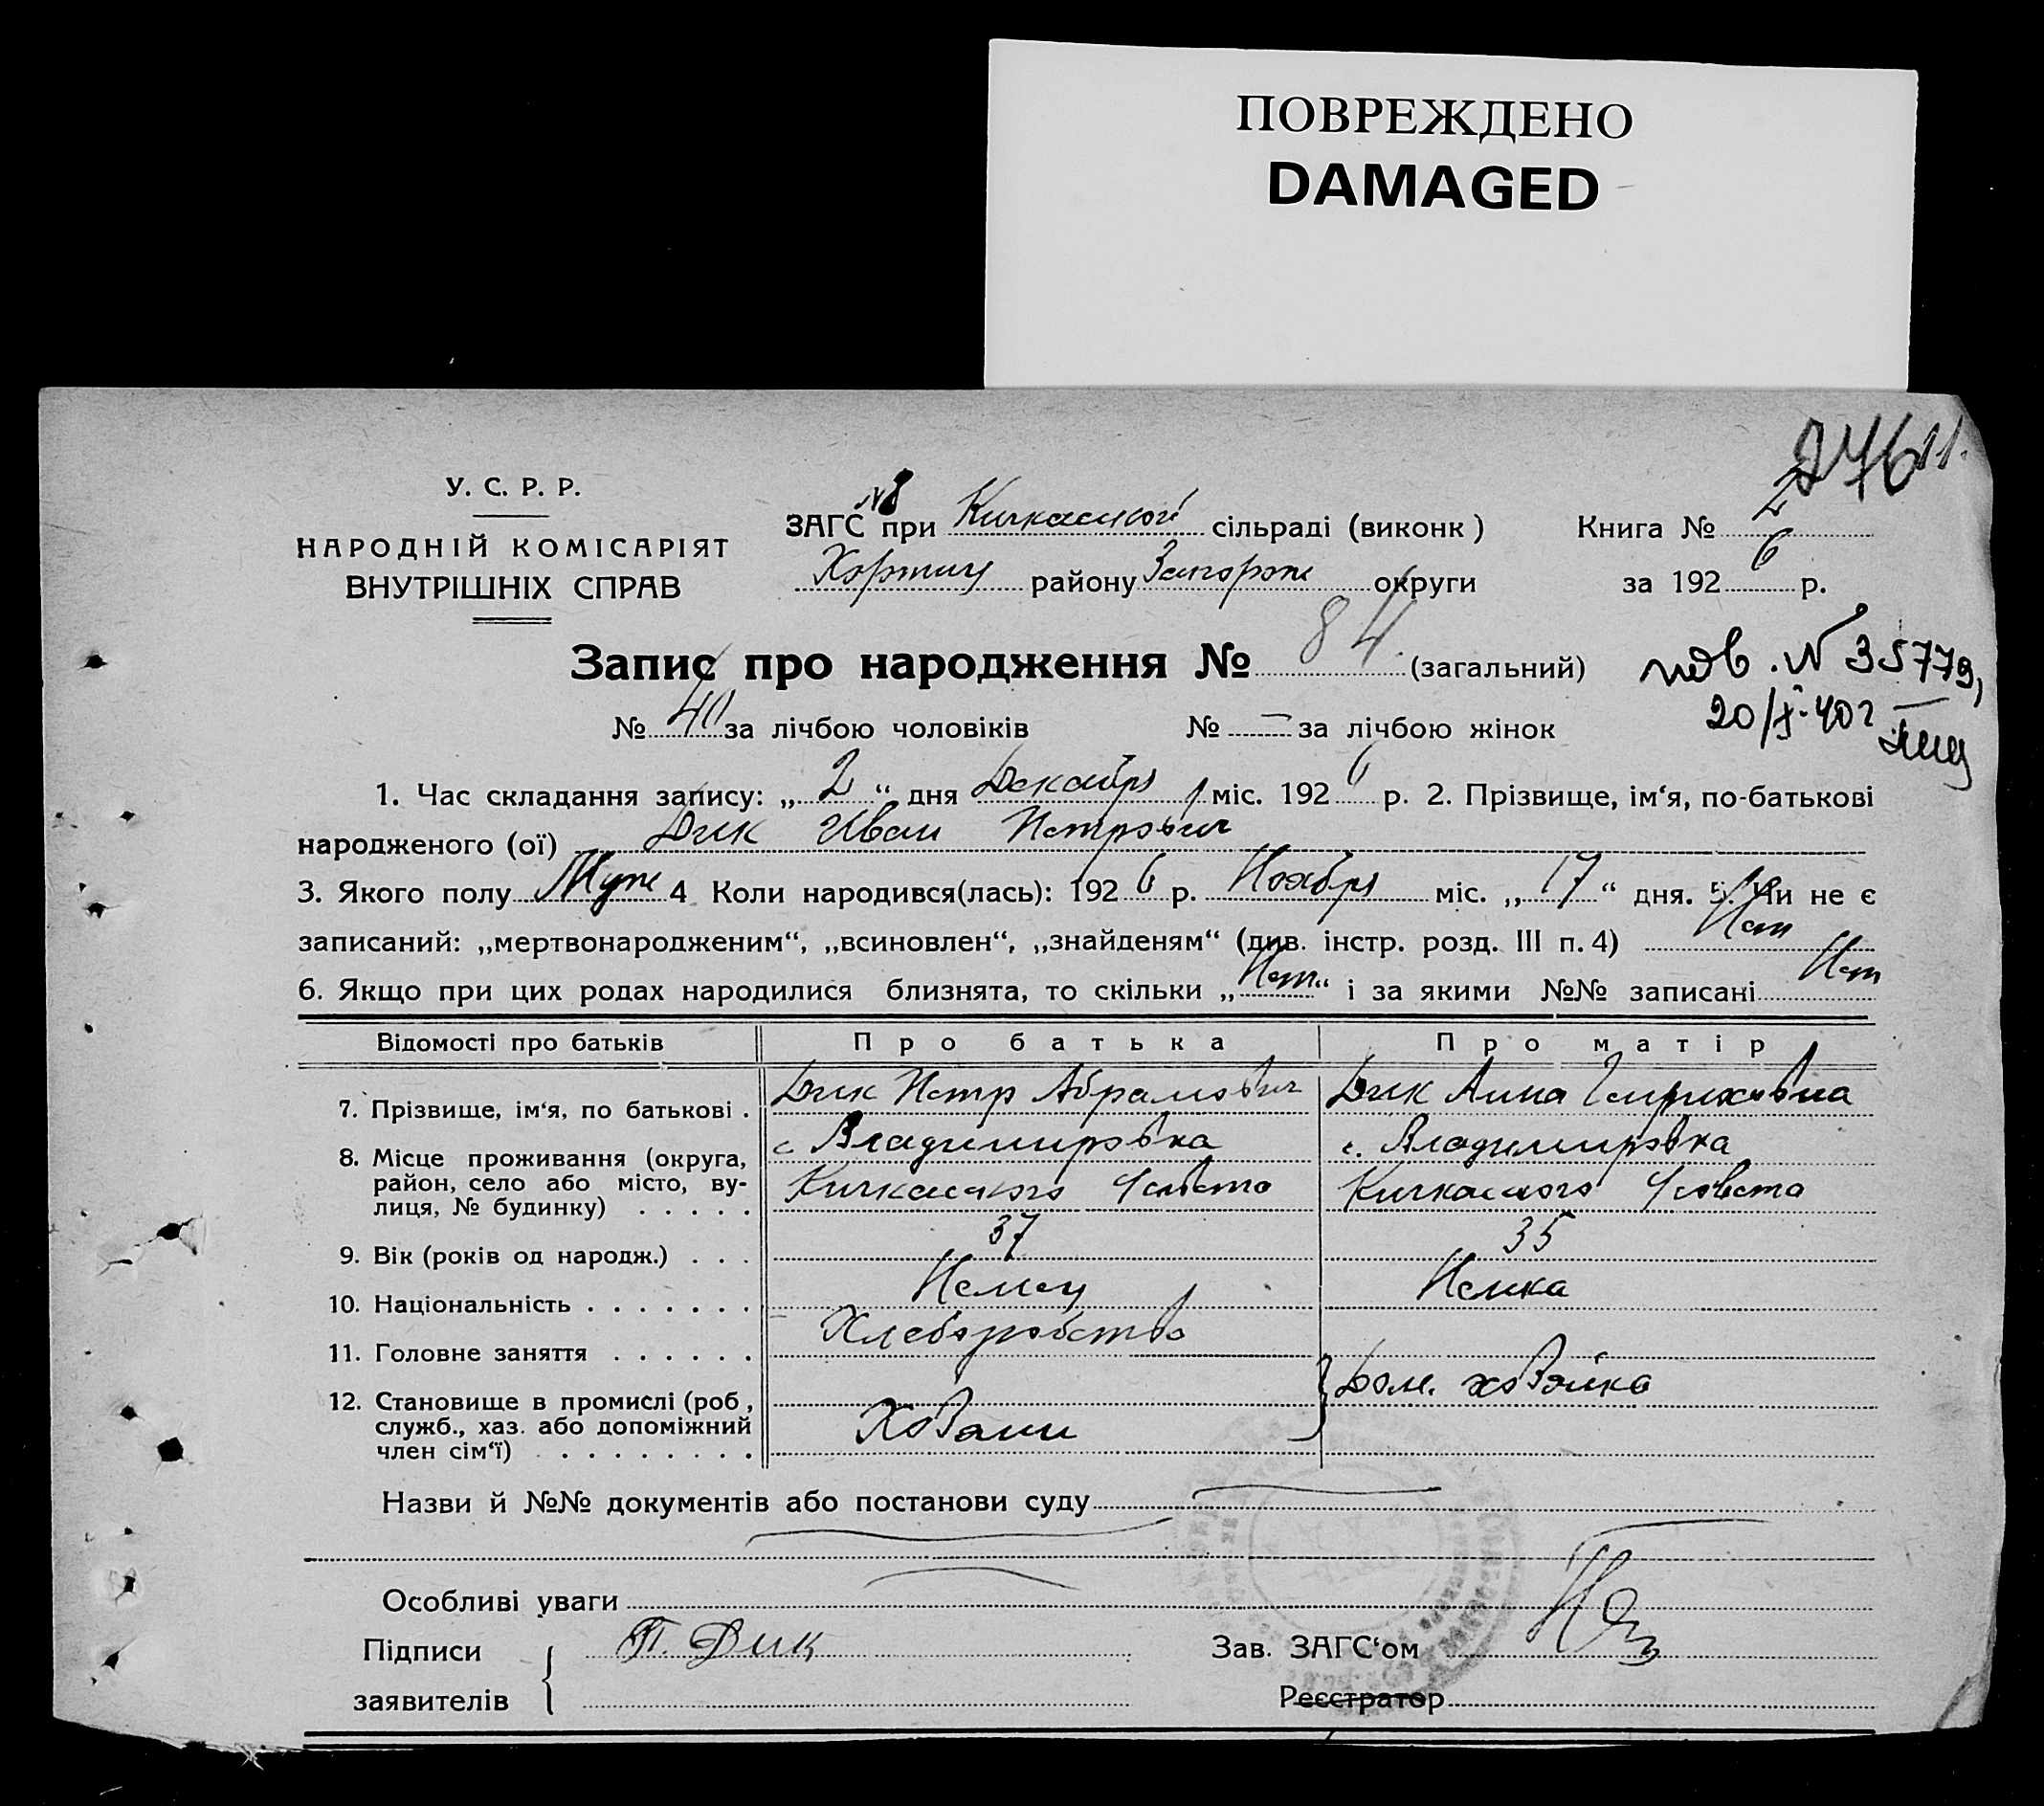 ПОВРЕЖДЕНО
DAMAGED
276 11.
У. С. Р. Р.
НАРОДНІЙ КОМІСАРІЯТ
ВНУТРІШНІХ СПРАВ
№8
ЗАГС при Кичкасской сільраді (виконк) Книга № 2
Хортиц району Запорож округи за 1926 р.
Запис про народження № 84. (загальний)
№ 40 за лічбою чоловіків № — за лічбою жінок
№ 35779,
20/X-40г
1. Час складання запису: „2“ дня Декабря міс. 1926 р. 2. Прізвище, ім‘я, по-батькові
народженого (ої) Дик Иван Петрович
3. Якого полу Муж 4 Коли народився(лась): 1926 р. Ноября міс. „17“ дня. 5. Чи не є
записаний: „мертвонародженим“, „всиновлен“, „знайденям“ (див. інстр. розд. III п. 4) Нет
6. Якщо при цих родах народилися близнята, то скільки „Нет“ і за якими №№ записані Нет
Відомості про батьків Про батька Про матір
7. Прізвище, ім‘я, по батькові . Дик Петр Абрамович Дик Анна Генриховна
8. Місце проживання (округа, с Владимировка с. Владимировка
район, село або місто, ву- Кичкасского Кичкасского
лиця, № будинку) . . . . .
9. Вік (років од народж.) . . . 37 35
10. Національність . . . . . . . Немец Немка
11. Головне заняття . . . . . . Хлеборобство
12. Становище в промислі (роб, Дом. хозяйка
служб., хаз. або допоміжний Хозяин
член сім‘ї) . . . . . . . .
Назви й №№ документів або постанови суду
Особливі уваги
Підписи П. Дик Зав. ЗАГС‘ом
заявителів Реєстратор